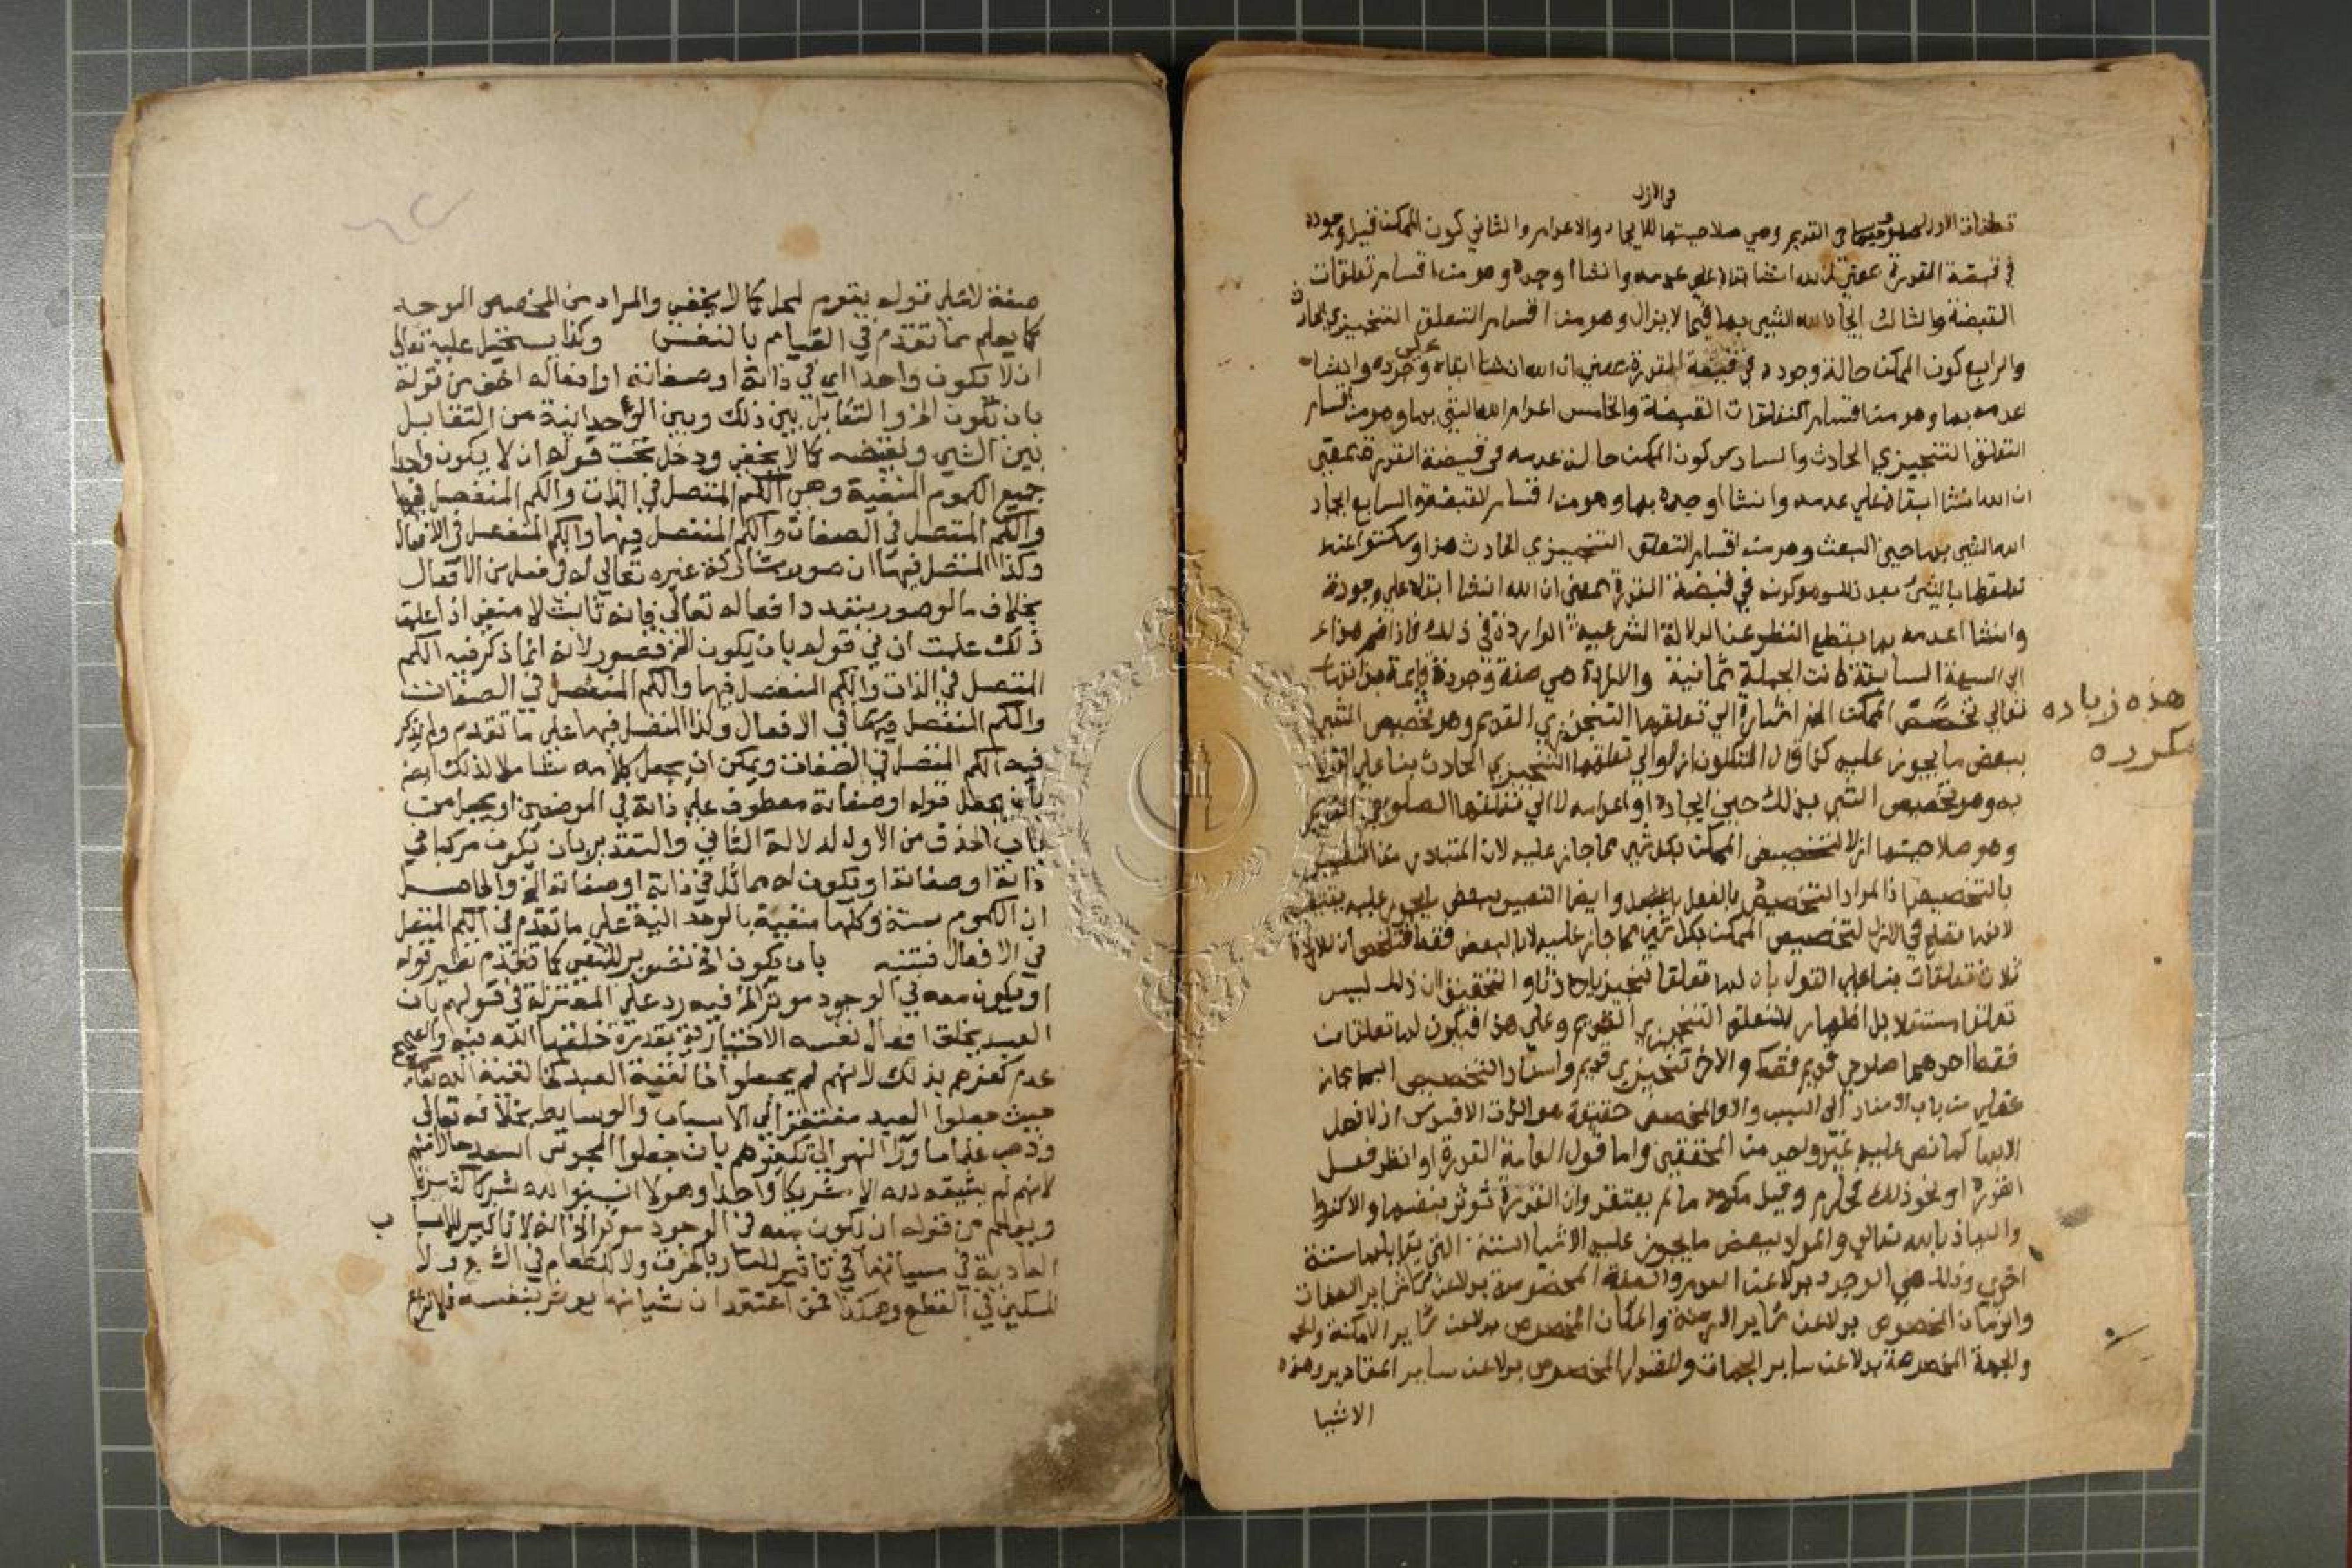 في الازل
تعلقات الاول صلوحي في القديم وهي صلاحيتها للايجاد والاعدام والثاني كون الممكن قبل وجوده
في قبضة القدرة بمعنى ان الله ان شا ابقاه على عدمه وان شا اوجده وهو من اقسام تعلقات
القبضة والثالث ايجاد الله الشي بها فيما لا يزال وهو من اقسام التعلق التنجيزي الحادث
والرابع كون الممكن حالة وجوده في قبضة القدرة بمعنى ان الله ان شا ابقاه على وجوده وان شا
عدمه بها وهو من اقسام التعلقات القبضة والخامس اعدام الله الشي بها وهو من اقسام
التعلق التنجيزي الحادث والسادس كون الممكن حالة عدمه في قبضة القدرة بمعنى
ان الله ان شا ابقاه على عدمه وان شا اوجده بها وهو من اقسام القبضة السابع ايجاد
الله الشي بها حين البعث وهو من اقسام التعلق التنجيزي الحادث هذا وسكتوا عن
تعلقها بالشي بعد ذلك وهو كونه في قبضة القدرة بمعنى ان الله ان شا ابقاه على وجوده
وان شا اعدمه بها بقطع النظر عن الدلالة الشرعية الواردة في ذلك فاذا ضم هذا
الى السبعة السابقة كانت الجملة ثمانية والارادة هي صفة وجودية قايمة بذاته
تعالى تخصص الممكن الخ اشارة الى تعلقها التنجيزي القديم وهو تخصيص الشي
هذه زياده
مكرره
ببعض ما يجوز عليه كذا قال المتكلون ازلا والى تعلقها التنجيزي الحادث بنا على القول
به وهو تخصيص الشي بذلك حين ايجاده او اعدامه لا الى تعلقها الصلوحي القديم
وهو صلاحيتها ازلا لتخصيص الممكن بكل شي مما جاز عليه لان المتبادر من التعبير
بالتخصيص اذ المراد التخصيص بالفعل وايضا التعبير ببعض ما يجوز عليه
لانها تصلح في الازل لتخصيص الممكن بكل شي مما جاز عليه لا بالبعض فقط فتلخص ان للارادة
ثلاث تعلقات بنا على القول بان لها تعلقا تنجيزيا حادثا والتحقيق ان ذلك ليس
تعلقا مستقلا بل اظهار للتعلق التنجيزي القديم وعلى هذا فيكون لها تعلقات
فقط احدهما صلوحي قديم فقط والاخر تنجيزي قديم واسناد التخصيص اليها مجاز
عقلي من باب الاسناد الى السبب والا فالمخصص حقيقة هو الذات الاقدس اذ لا فعل
الا بها كما نص عليه غير واحد من المحققين واما قول العامة القدرة او انظر فعل
القدرة او نحو ذلك فحرام وقيل مكروه ما لم يعتقد ان القدرة تؤثر بنفسها والا كفر
والعياذ بالله تعالى والمراد ببعض ما يجوز عليه الاشيا الستة التي يقابلها ستة
اخرى وذلك هي الوجود بدلا عن العدم والصفة المخصوصة بدلا عن سائر الصفات
والزمان المخصوص بدلا عن ساير الازمنة والمكان المخصوص بدلا عن ساير الامكنة
والجهة المخصوصة بدلا عن ساير الجهات والمقدار المخصوص بدلا عن ساير المقادير وهذه
الاشيا
صفة لا على قوله يقوم لمحل كما لا يخفى والمراد من المخصص الموجد
كما يعلم مما تقدم في القيام بالنفس وكذا يستحيل عليه تعالى
ان لا يكون واحدا اي في ذاته او صفاته او افعاله اخذا من قوله
بان يكون الخ والتقابل بين ذلك وبين الوحدانية من التقابل
بين الشي ونقيضه كما لا يخفى ودخل تحت قوله ان لا يكون واحدا
جميع الكموم المنفية وهي الكم المتصل في الذات والكم المنفصل فيها
والكم المتصل في الصفات والكم المنفصل فيها والكم المنفصل في الافعال
وكذا المتصل فيها ان صور بمشاركة غيره تعالى له في فعل من الافعال
بخلاف ما لو صور بتعدد افعاله تعالى فانه ثابت لا منفي اذا علمت
ذلك علمت ان في قوله بان يكون الخ قصور لانه انما ذكر فيه الكم
المتصل في الذات والكم المنفصل فيها والكم المنفصل في الصفات
والكم المنفصل في الافعال وكذا المتصل فيها على ما تقدم ولم يذكر
فيه الكم المتصل في الصفات ويمكن ان يجعل كلامه شاملا لذلك ايضا
بان يجعل قوله او صفاته معطوف على ذاته في الموضعين او يجعل من
باب الحذف من الاول لدلالة الثاني والتقدير بان يكون مركبا في
ذاته او صفاته او يكون له مماثل في ذاته او صفاته الخ والحاصل
ان الكموم ستة وكلها منفية بالوحدانية على ما تقدم في الكم المتصل
في الافعال فتنبه بان يكون الخ تصوير للنفي كما تقدم نظير قوله
او يكون معه في الوجود موثر الخ فيه رد على المعتزلة في قولهم بان
العبد يخلق افعال نفسه الاختيارية بقدرة خلقها الله فيه والصحيح
عدم كفرهم بذلك لانهم لم يجعلوا خالقية العبد كخالقية الله تعالى
حيث جعلوا العبد مفتقرا الى الاسباب والوسايط بخلافه تعالى
وذهب علما ما ورا النهر الى تكفيرهم بان جعلوا المجوس اسعد حالا منهم
لانهم لم يثبتوا لله الا شريكا واحدا وهولا اثبتوا لله شركا كثيرة
ويعلم من قوله ان يكون معه في الوجود موثر الخ انه لا تاثير للاسباب
العادية في مسبباتها في تاثير للنار بالحرق ولا للطعام في الشبع ولا
للسكين في القطع وهكذا فمن اعتقد ان شيا منها يوثر بنفسه فلا نزاع